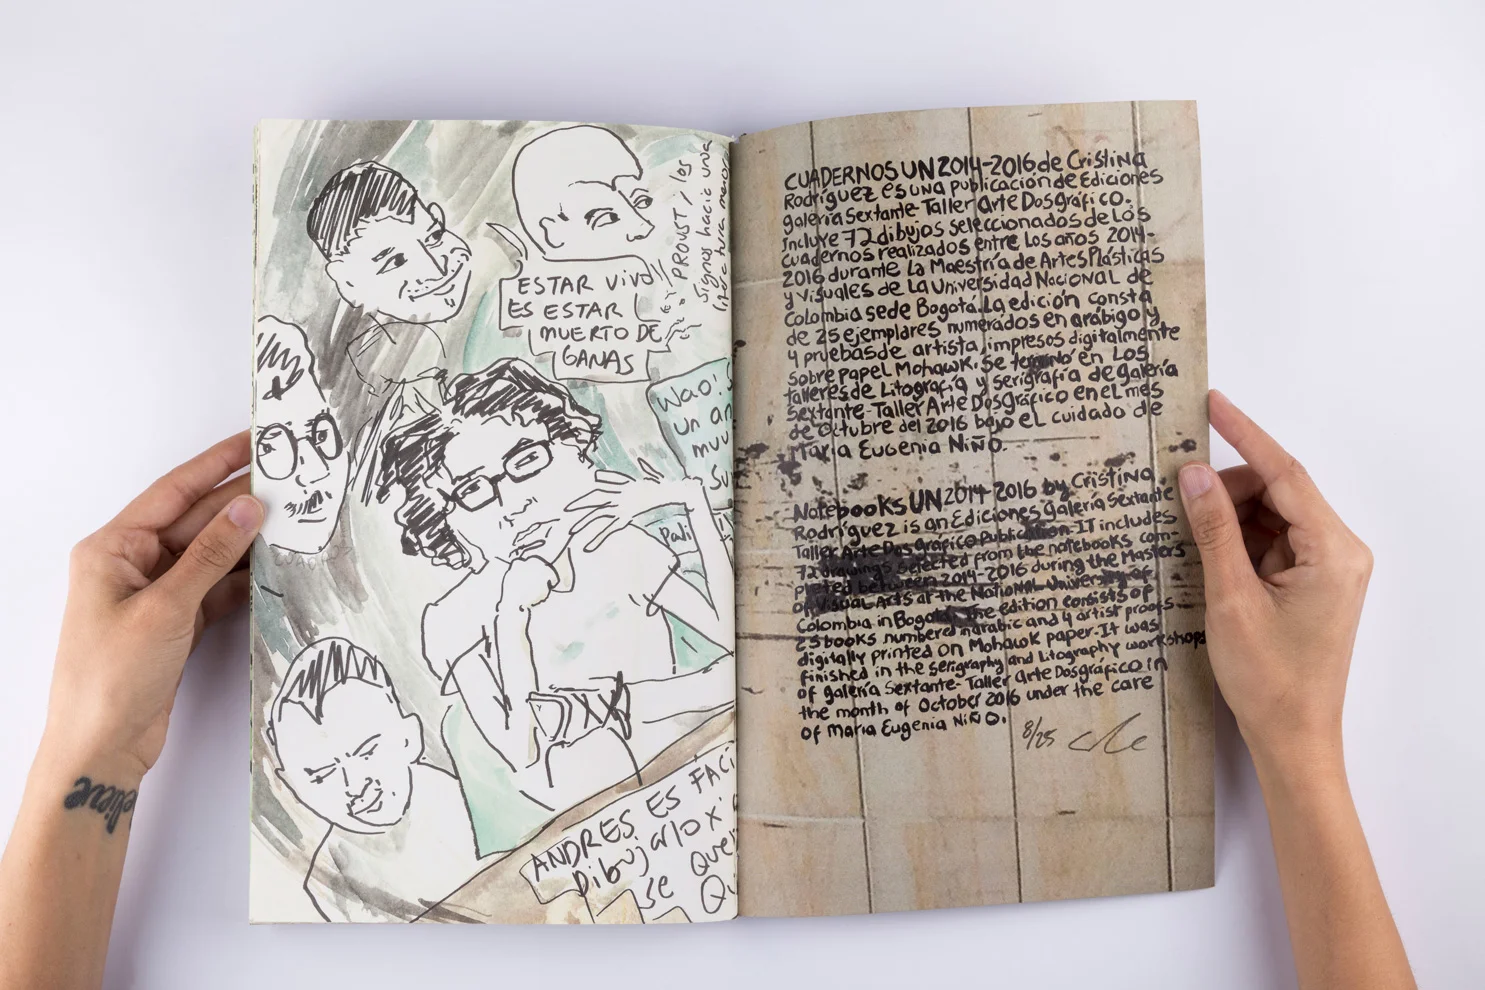 ESTAR VIVO
ES ESTAR
MUERTO DE
GANAS
PROUST y los
signos hacia una
literatura menor
Wao!
un
muy
Pali
CUAD
ANDRES ES FACI
Dibujarlo x'
se que
Qu
CUADERNOS UN 2014-2016 de Cristina
Rodríguez es una publicación de Ediciones
galería Sextante-Taller Arte Dos Gráfico.
Incluye 72 dibujos seleccionados de los
cuadernos realizados entre Los años 2014-
2016 durante La Maestría de Artes Plásticas
y Visuales de La Universidad Nacional de
Colombia sede Bogotá. La edición consta
de 25 ejemplares numerados en arábigo y
4 pruebas de artista, impresos digitalmente
sobre papel Mohawk. Se terminó en Los
talleres de Litografía y serigrafía de galería
Sextante-Taller Arte Dos Gráfico en el mes
de octubre del 2016 bajo eL cuidado de
María Eugenia Niño.
Notebooks UN 2014-2016 by Cristina
Rodríguez is an Ediciones galería Sextante
Taller Arte Dos Gráfico Publication-IT includes
72 drawings selected from the notebooks com-
pleted between 2014-2016 during the Masters
of Visual Arts at the National University of
Colombia in Bogotá. The edition consists of
25 books numbered in arabic and 4 artist proofs
digitally printed on Mohawk paper. It was
finished in the serigraphy and Litography workshops
of galería Sextante-Taller Arte Dos gráfico in
the month of October 2016 under the care
of María Eugenia Niño.
8/25
believe